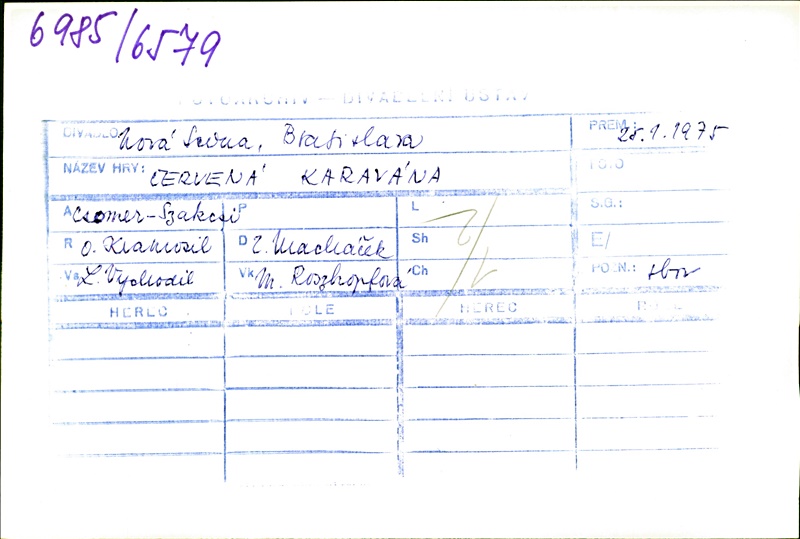 6985/6579
FOTOARCHIV — DIVADELNÍ ÚSTAV
DIVADLO: Nová Scéna, Bratislava PREM.: 25.1.1975
NÁZEV HRY: ČERVENÁ KARAVÁNA
A Csomer-Szakcsi P L S.G.:
R O. Kramosil D Z. Macháček Sh E/
Va L. Vychodil Vk M. Roszkopfová Ch POZN.: sbor
HEREC ROLE HEREC ROLE